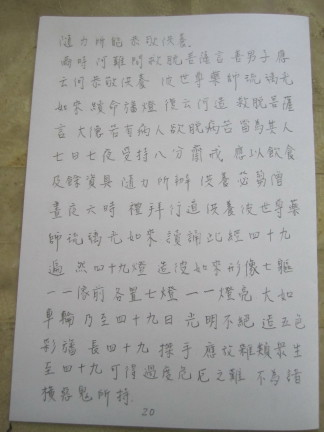 隨力所能恭敬供養.
爾時阿難問救脫菩薩言善男子應
云何恭敬供養彼世尊藥師琉璃光
如來續命旛燈復云何造救脫菩薩
言大德若有病人欲脫病苦當為其人
七日七夜受持八分齋戒應以飲食
及餘資具隨力所辦供養苾芻僧
晝夜六時禮拜行道供養彼世尊藥
師琉璃光如來讀誦此經四十九
遍然四十九燈造彼如來形像七軀
一一像前各置七燈一一燈亮大如
車輪乃至四十九日光明不絕造五色
彩旛長四十九搩手應放雜類眾生
至四十九可得過度危厄之難不為諸
橫惡鬼所持.
20